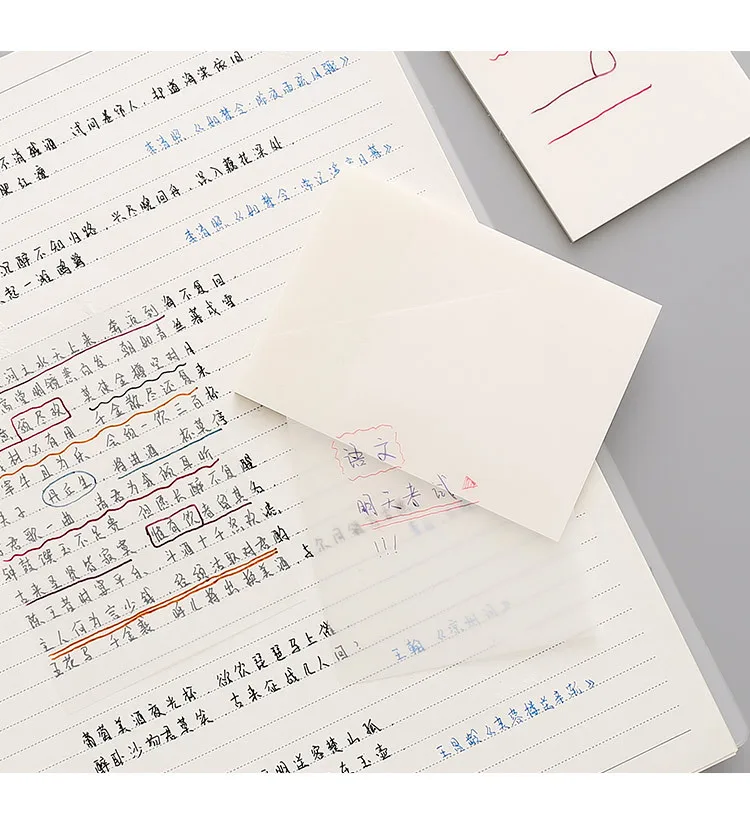 不消残酒，试问卷帘人，却道海棠依旧，
李清照《如梦令·昨夜雨疏风骤》
肥红瘦
沉醉不知归路，兴尽晚回舟，误入藕花深处
李清照《如梦令·常记溪亭日暮》
起一滩鸥鹭
河之水天上来，奔流到海不复回，
高堂明镜悲白发，朝如青丝暮成雪，
须尽欢 莫使金樽空对月
材必有用 千金散尽还复来
宰牛且为乐 会须一饮三百杯
夫子 丹丘生 将进酒 杯莫停
君歌一曲 请君为我倾耳听
钟鼓馔玉不足贵 但愿长醉不复醒
古来圣贤皆寂寞 惟有饮者留其名，
陈王昔时宴平乐，斗酒十千恣欢谑
主人何为言少钱 径须沽取对君酌
五花马 千金裘 呼儿将出换美酒，与
语文
明天考试
!!!
王翰《凉州词》
葡萄美酒夜光杯 欲饮琵琶马上催
醉卧沙场君莫笑 古来征战几人回？
明送客楚山孤
王昌龄《芙蓉楼送辛渐》
在玉壶